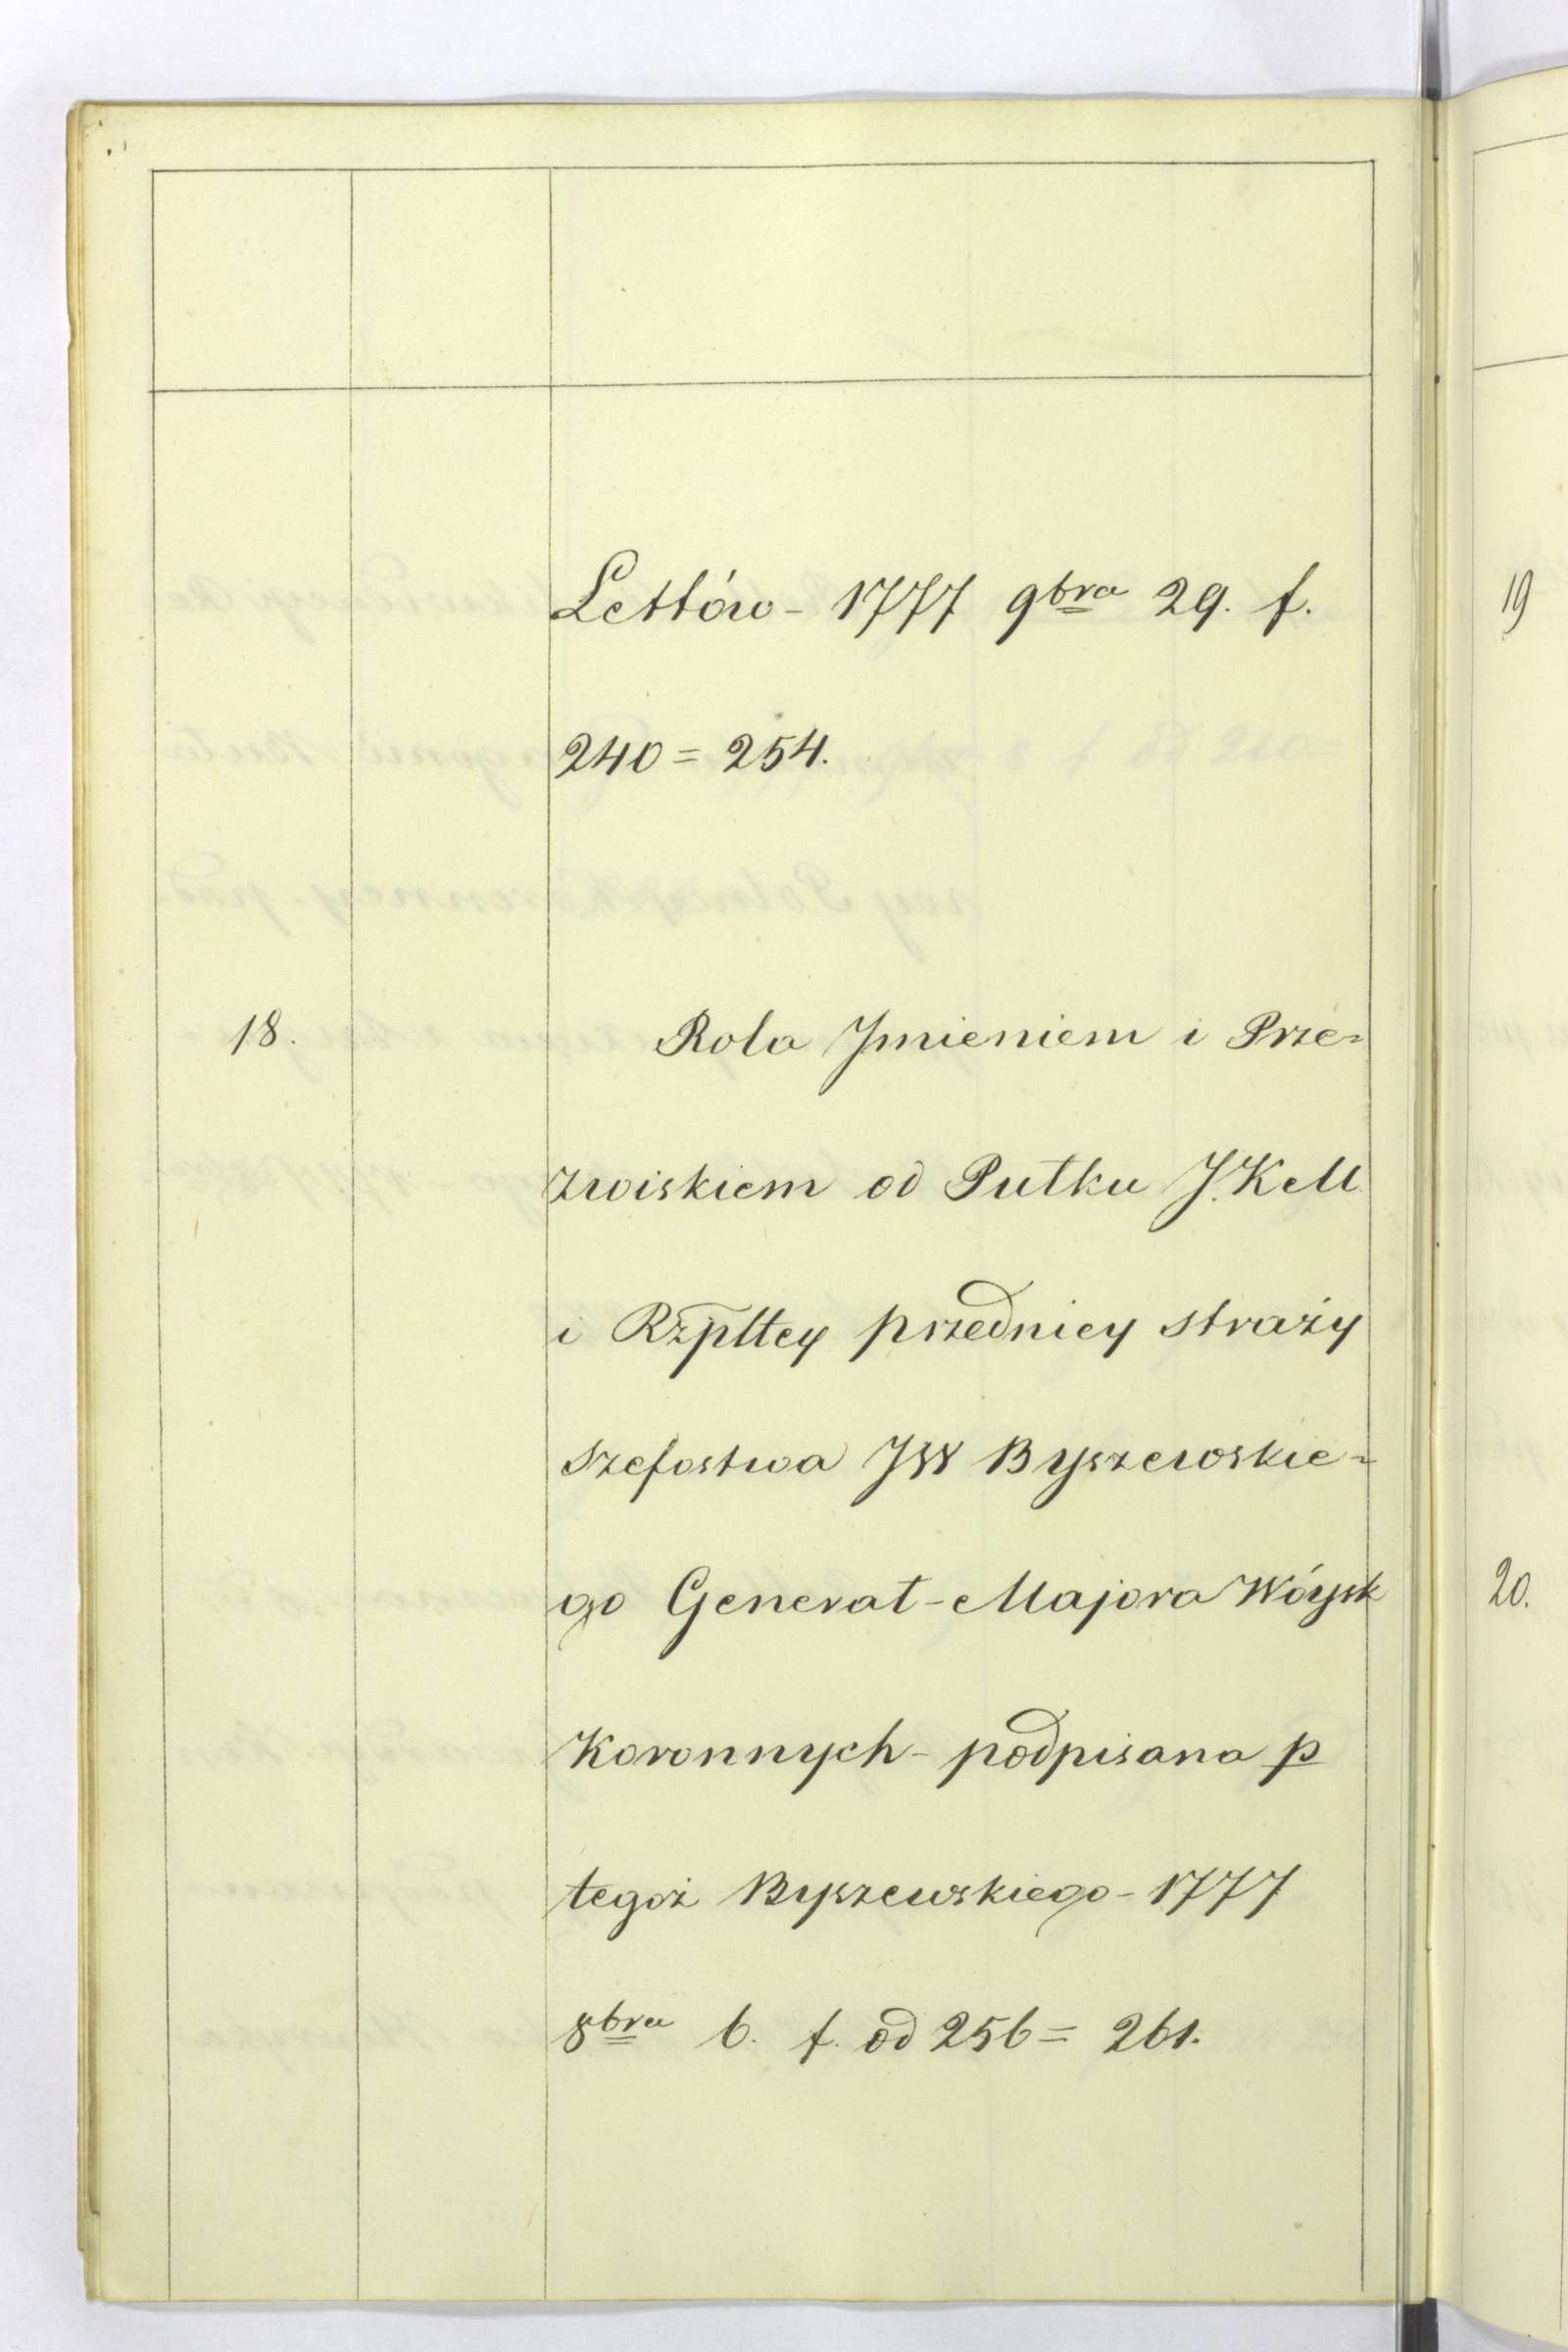 Lettów - 1777 9bra 29. f.
240 = 254.
18. Rola Jmieniem i Prze=
zwiskiem od Pułku J.K.M
i Rzpltey przedniey straży
Szefostwa JW Byszewskie=
go Generał-Majora Wóysk
Koronnych - podpisana p
tegoż Byszewskiego - 1777
8bra 6. f. od 256 = 261.
19
20.